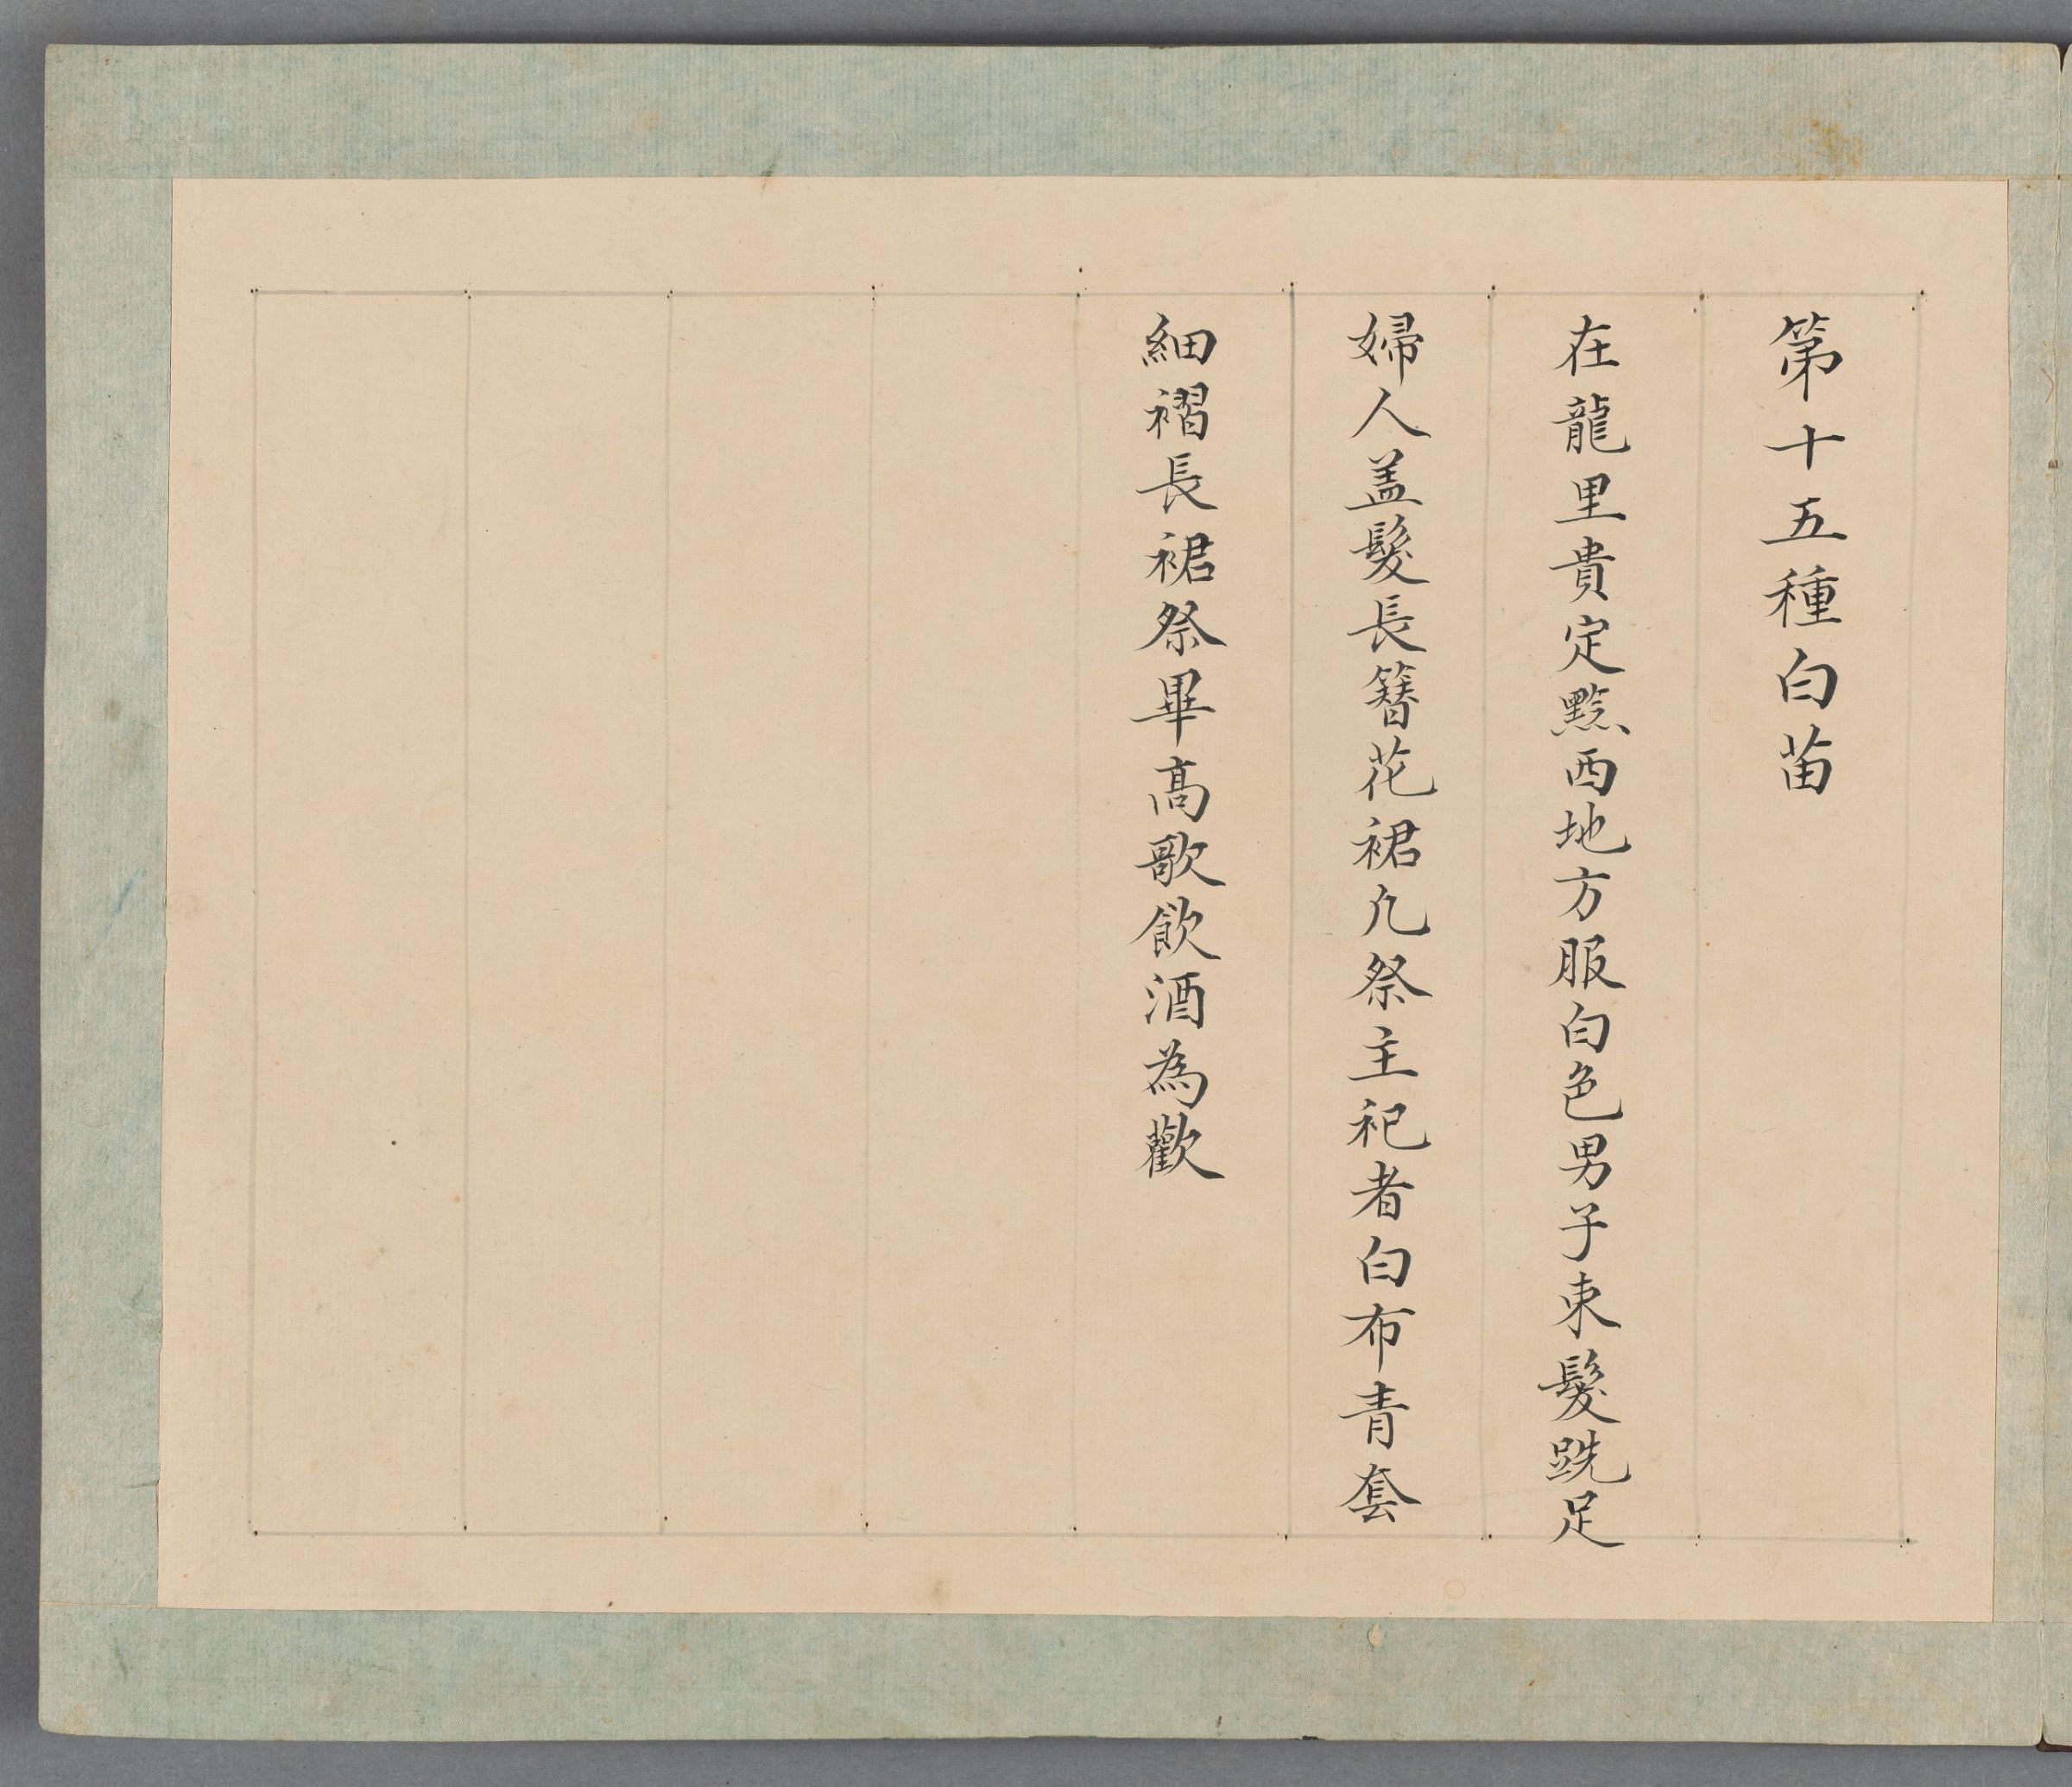 第十五種白苗
在龍里貴定黔西地方服白色男子束髮跣足
婦人盖髮長簪花裙凢祭主祀者白布青套
細褶長裙祭畢高歌飲酒為歡